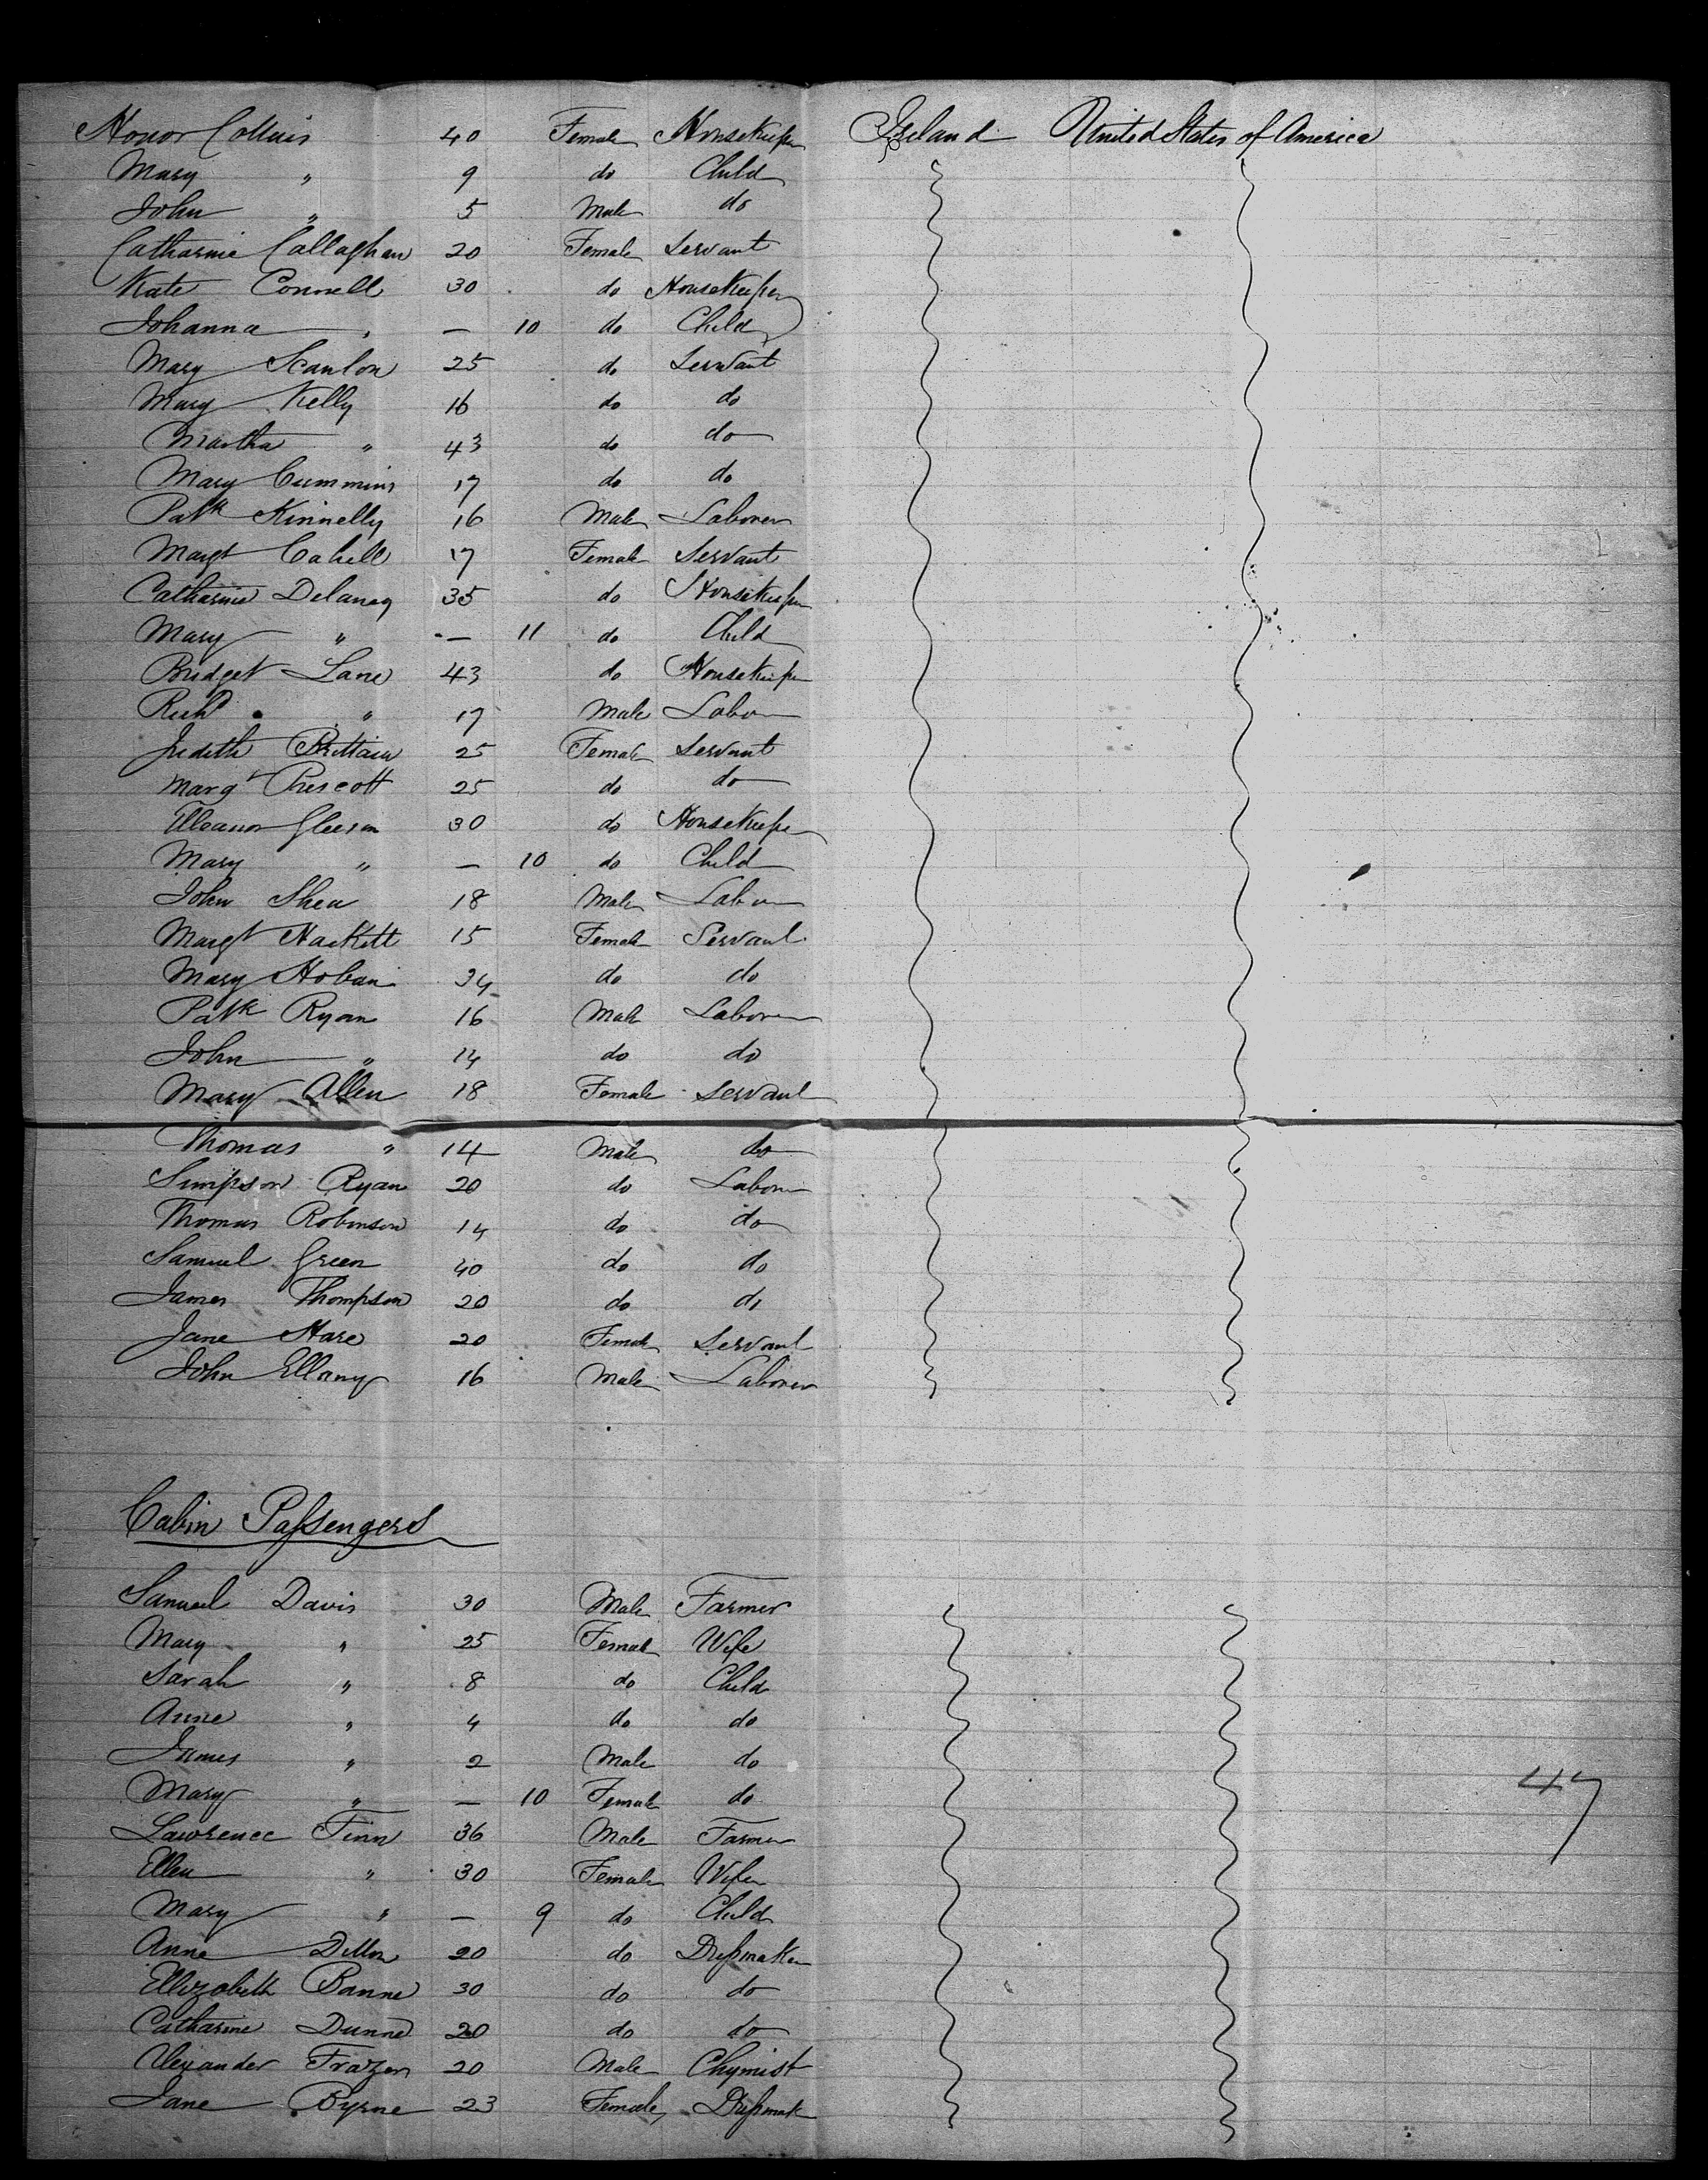 Honor Collins 40 Female Housekeeper Ireland United States of America
Mary " 9 do Child
John " 5 Male do
Catharine Callaghan 20 Female Servant
Kate Connell 30 do Housekeeper
Johanna " — 10 do Child
Mary Scanlon 25 do Servant
Mary Kelly 16 do do
Martha " 43 do do
Mary Cummins 17 do do
Patk Kinnelly 16 Male Laborer
Margt Cahill 17 Female Servant
Catharine Delaney 35 do Housekeeper
Mary " — 11 do Child
Bridget Lane 43 do Housekeeper
Richd " 17 Male Labor
Judith Brittain 25 Female Servant
Margt Prescott 25 do do
Elleanor Gleeson 30 do Housekeeper
Mary " — 10 do Child
John Shea 18 Male Labor
Margt Hackett 15 Female Servant
Mary Hoban 34 do do
Patk Ryan 16 Male Laborer
John " 14 do do
Mary Allen 18 Female Servant
Thomas " 14 Male do
Simpson Ryan 20 do Labor
Thomas Robinson 14 do do
Samuel Green 40 do do
James Thompson 20 do do
Jane Hare 20 Female Servant
John Ellany 16 Male Laborer
Cabin Passengers
Samuel Davis 30 Male Farmer
Mary " 25 Female Wife
Sarah " 8 do Child
Anne " 4 do do
James " 2 Male do
Mary " — 10 Female do
47
Lawrence Finn 36 Male Farmer
Ellen " 30 Female Wife
Mary " — 9 do Child
Anne Dillon 20 do Dressmaker
Ellizabeth Banne 30 do do
Catharine Dunne 20 do do
Alexander Frazer 20 Male Chymist
Jane Byrne 23 Female Dressmak